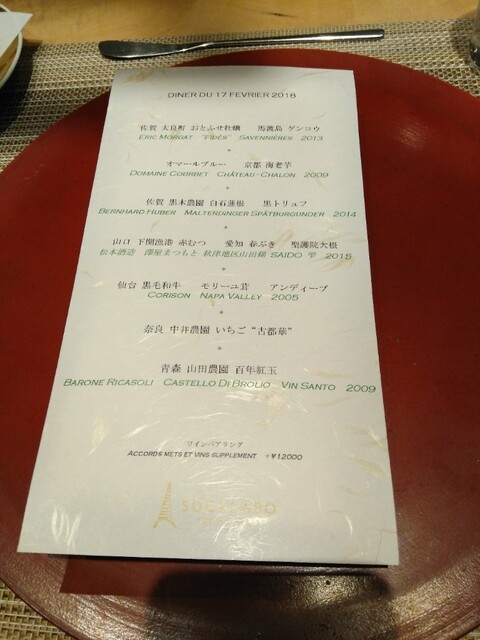 DINER DU 17 FEVRIER 2018
佐賀 太良町 おとふせ牡蠣 馬渡島 ゲンコウ
ERIC MORGAT "FIDÈS" SAVENNIÈRES 2013
オマールブルー 京都 海老芋
DOMAINE COURBET CHÂTEAU-CHALON 2009
佐賀 黒木農園 白石蓮根 黒トリュフ
BERNHARD HUBER MALTERDINGER SPÄTBURGUNDER 2014
山口 下関漁港 赤むつ 愛知 春ぶき 聖護院大根
松本酒造 澤屋まつもと 秋津地区山田錦 SAIDO 雫 2015
仙台 黒毛和牛 モリーユ茸 アンディーブ
CORISON NAPA VALLEY 2005
奈良 中井農園 いちご "古都華"
青森 山田農園 百年紅玉
BARONE RICASOLI CASTELLO DI BROLIO VIN SANTO 2009
ワインペアリング
ACCORDS METS ET VINS SUPPLEMENT +¥12000